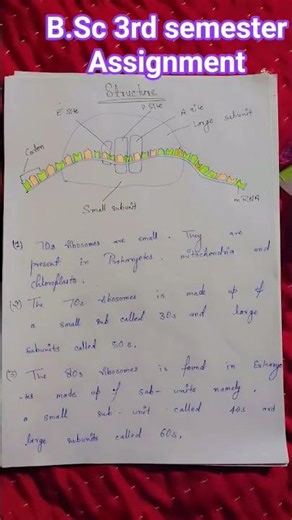 B.Sc 3rd semester
Assignment
Structure
E site
P site
A site
large subunit
Codon
mRNA
Small subunit
(1) 70s ribosomes are small. They are
present in Prokaryotes, mitochondria and
Chloroplasts.
(2) The 70s ribosomes is made up of
a small sub called 30s and large
subunits called 50s.
(3) The 80s ribosomes is found in
made up of sub-units namely.
a small sub-unit called 40s and
large subunits called 60s.